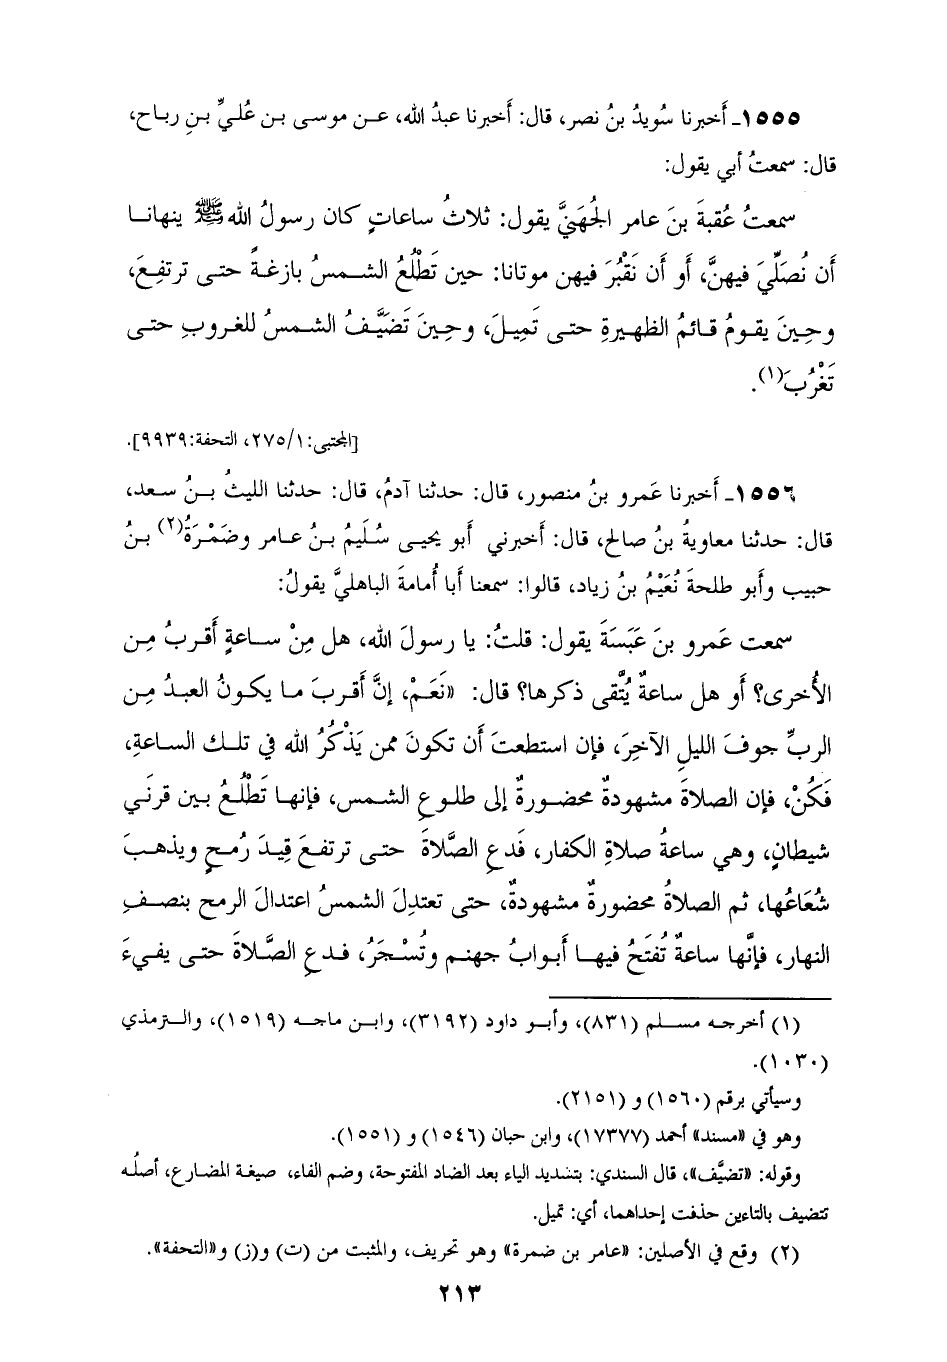 ١٥٥٥ـ أَخبرنا سُويدُ بنُ نصر، قال: أَخبرنا عبدُ الله، عن موسى بن عُليٍّ بنِ رباح،
قال: سمعتُ أبي يقول:
سمعتُ عُقبةَ بنَ عامر الجُهَنيَّ يقول: ثلاثُ ساعاتٍ كان رسولُ الله ﷺ ينهانا
أَن نُصَلِّيَ فيهنَّ، أَو أَن نَقْبُرَ فيهن موتانا: حين تَطْلُعُ الشمسُ بازغةً حتى ترتفِعَ،
وحِينَ يقومُ قائمُ الظهيرةِ حتى تَمِيلَ، وحِينَ تَضَيَّفُ الشمسُ للغروبِ حتى
تَغْرُبَ(١).
[المجتبى: ٢٧٥/١، التحفة: ٩٩٣٩].
١٥٥٦ـ أَخبرنا عَمرو بنُ منصور، قال: حدثنا آدمُ، قال: حدثنا الليثُ بنُ سعد،
قال: حدثنا معاويةُ بنُ صالح، قال: أَخبرني أبو يحيى سُلَيمُ بنُ عامر وضَمْرَةُ(٢) بنُ
حبيب وأَبو طلحةَ نُعَيْمُ بنُ زياد، قالوا: سمعنا أَبا أُمامةَ الباهليَّ يقولُ:
سمعت عَمرو بنَ عَبَسَةَ يقول: قلتُ: يا رسولَ الله، هل مِنْ ساعةٍ أَقربُ مِن
الأُخرى؟ أَو هل ساعةٌ يُتَّقى ذكرها؟ قال: «نَعَمْ، إنَّ أَقربَ ما يكونُ العبدُ مِن
الربِّ جوفَ الليلِ الآخِرَ، فإن استطعتَ أَن تكونَ ممن يَذْكُرُ الله في تلك الساعةِ،
فَكُنْ، فإن الصلاةَ مشهودةٌ محضورةٌ إلى طلوعِ الشمسِ، فإنها تَطْلُعُ بين قرنَي
شيطانٍ، وهي ساعةُ صلاةِ الكفار، فَدعِ الصَّلاةَ حتى ترتفعَ قِيدَ رُمحٍ ويذهبَ
شُعَاعُها، ثم الصلاةُ محضورةٌ مشهودةٌ، حتى تعتدِلَ الشمسُ اعتدالَ الرمح بنصفِ
النهار، فإنَّها ساعةٌ تُفتَحُ فيها أَبوابُ جهنم وتُسْجَرُ، فدعِ الصَّلاةَ حتى يفيءَ
(١) أخرجه مسلم (٨٣١)، وأبو داود (٣١٩٢)، وابن ماجه (١٥١٩)، والترمذي
(١٠٣٠).
وسيأتي برقم (١٥٦٠) و (٢١٥١).
وهو في «مسند» أحمد (١٧٣٧٧)، وابن حبان (١٥٤٦) و (١٥٥١).
وقوله: «تضيَّف»، قال السندي: بتشديد الياء بعد الضاد المفتوحة، وضم الفاء، صيغة المضارع، أصلُه
تتضيف بالتاءين حذفت إحداهما، أي: تميل.
(٢) وقع في الأصلين: «عامر بن ضمرة» وهو تحريف، والمثبت من (ت) و(ز) و«التحفة».
٢١٣